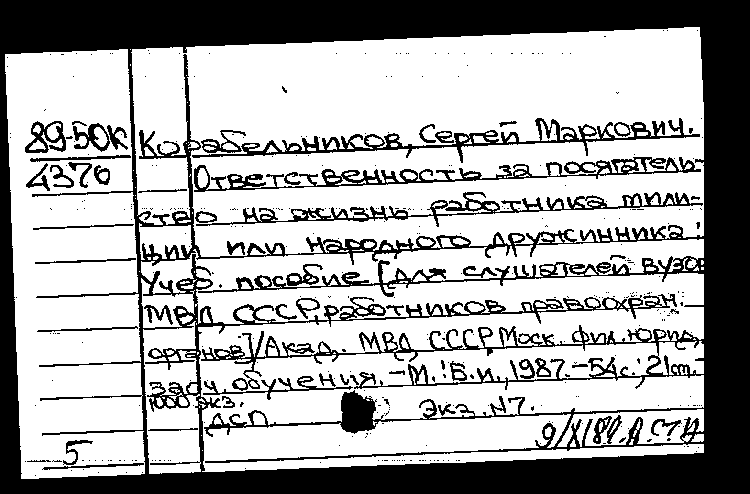 89-50К Корабельников, Сергей Маркович.
4370 Ответственность за посягатель-
ство на жизнь работника мили-
ции или народного дружинника :
Учеб. пособие [для слушателей вузов
МВД СССР, работников правоохран.
органов]/Акад. МВД СССР, Моск. фил. юрид.
заоч. обучения. - М. : Б.и., 1987. - 54с.; 21см. -
1000 экз.
ДСП. Экз. №7.
5 9/X189.